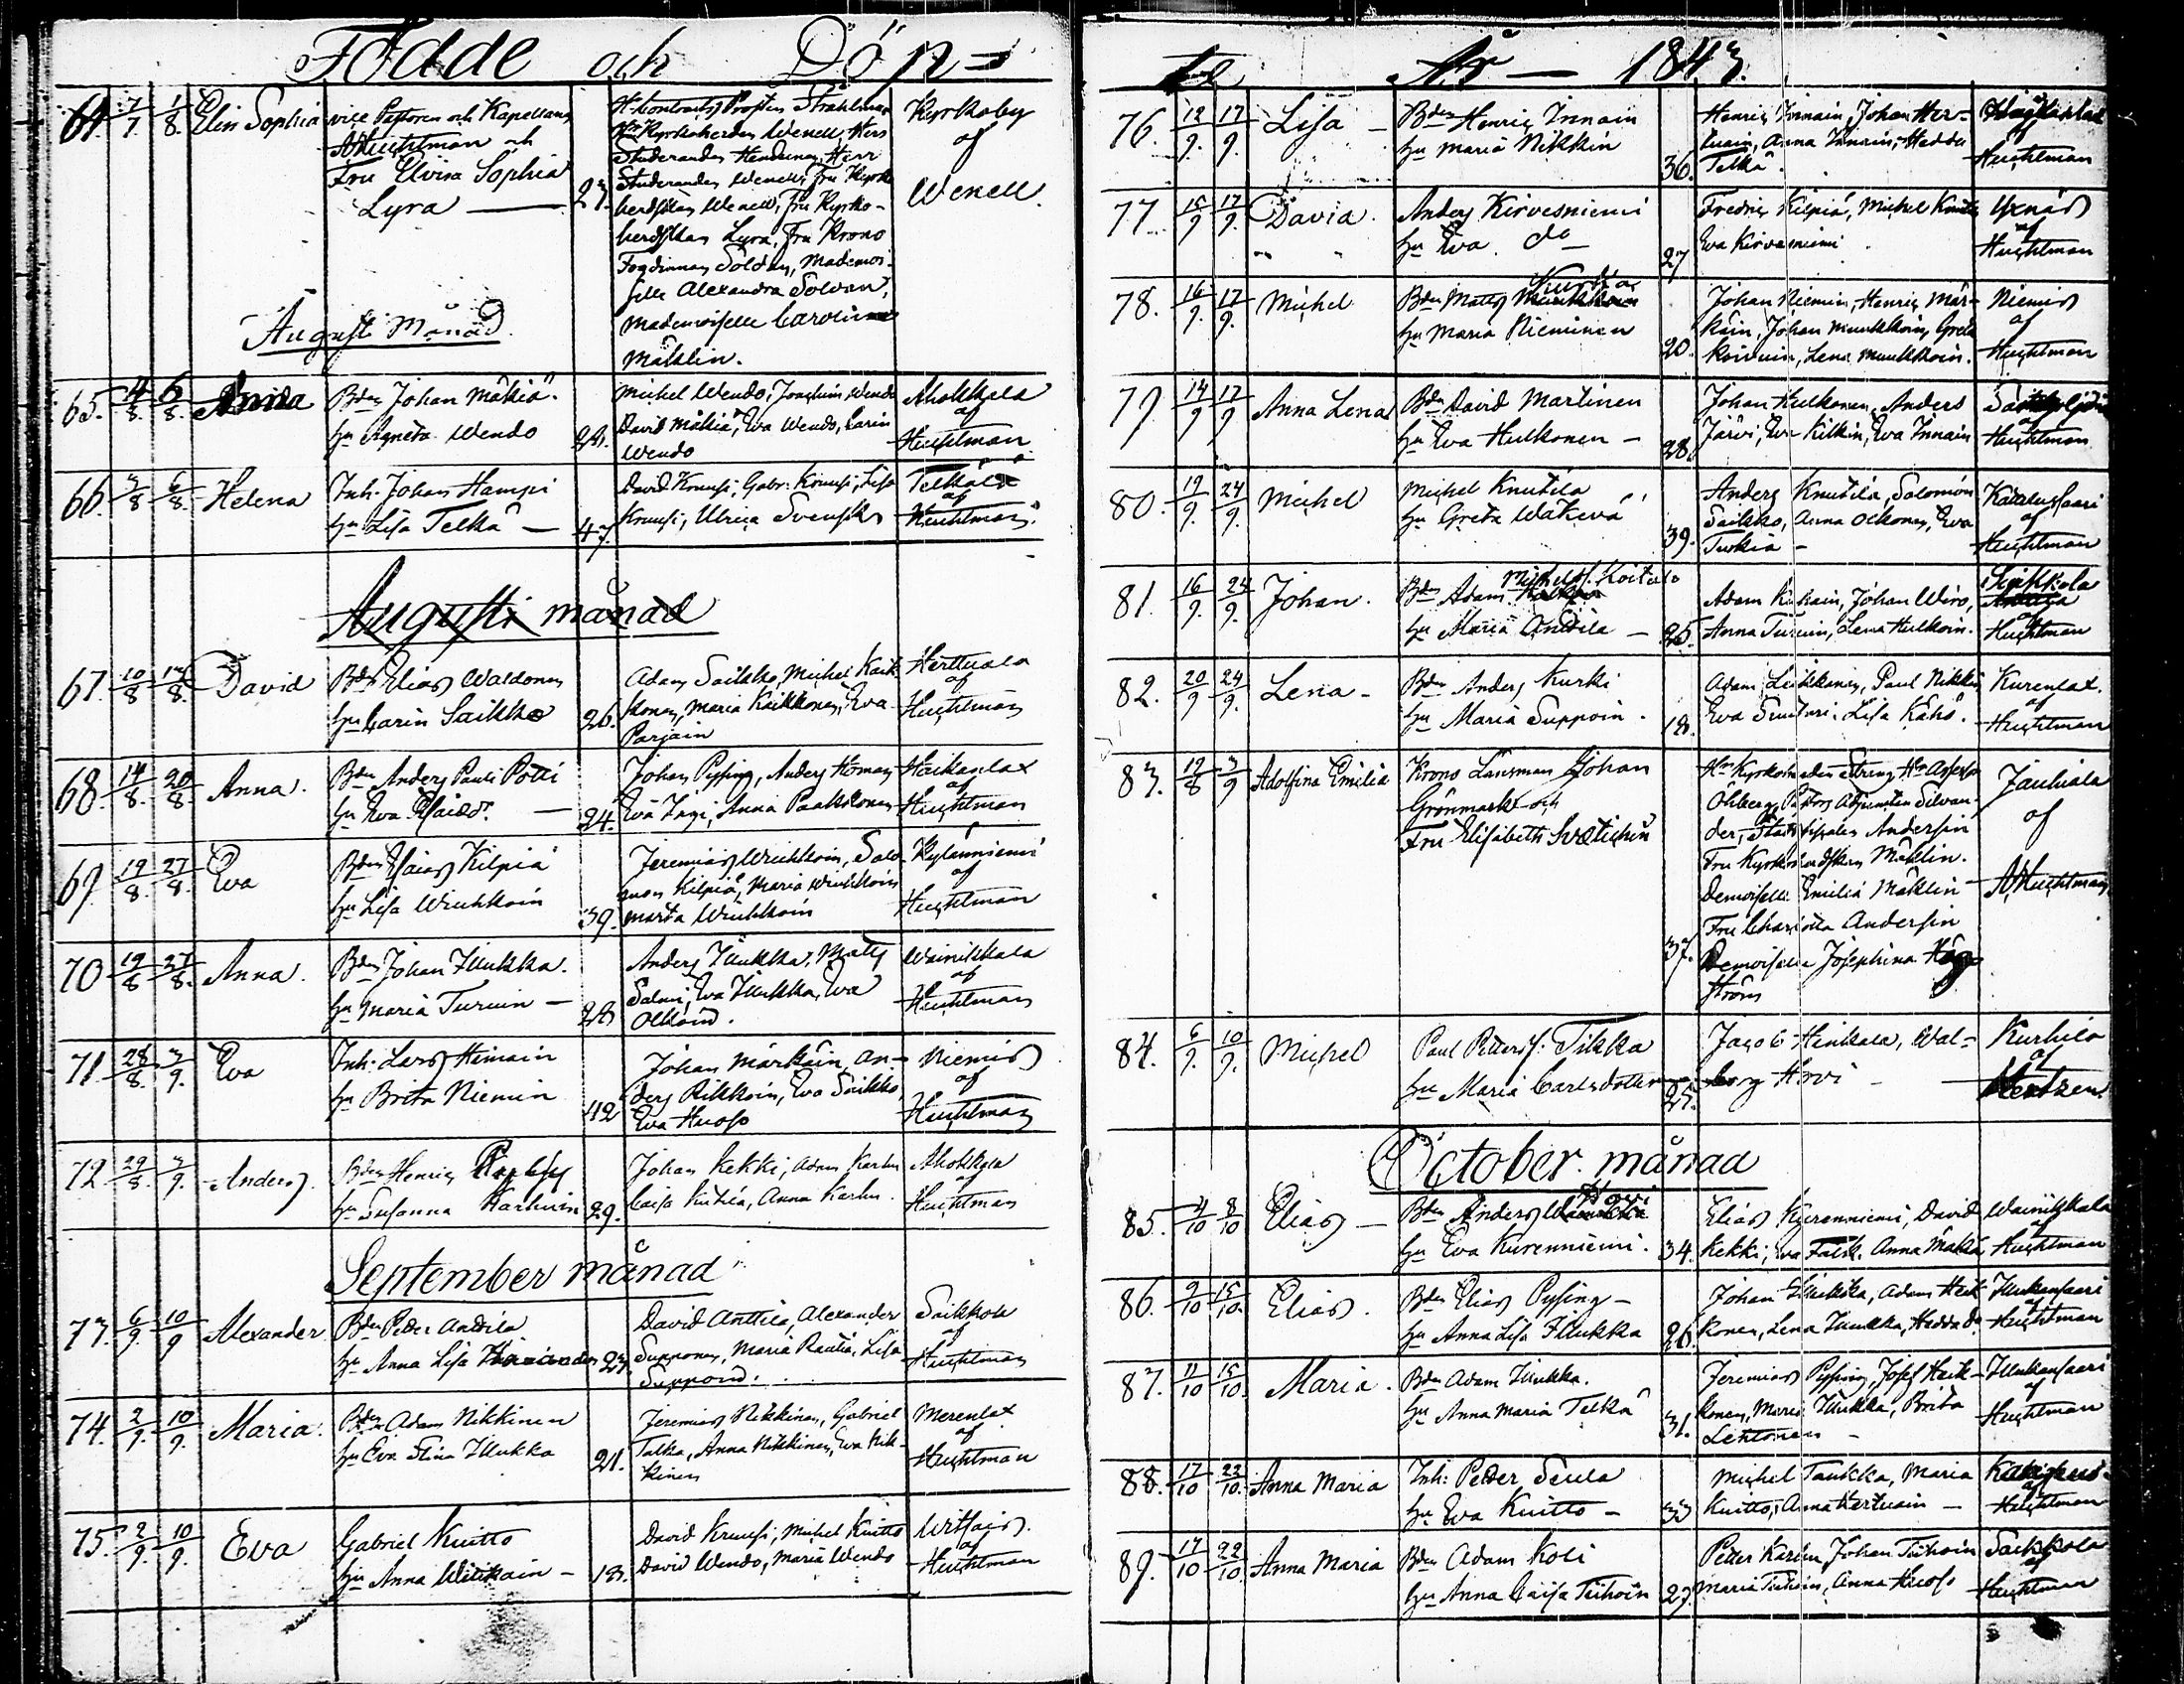 Födde och Döp=
64. 7/7 1/8. Elin Sophia vice Pastoren och Kapellanen
A Huchtman och
Fru Elvira Sophia
Lyra — 27.
Hr Contracts Prosten Strahlman
Hr Kyrkoherden Wenell, Herr
Studeranden Herr
Studeranden Wenell, Fru Kyrko
herdskan Wenell, Fru Kyrko-
herdskan Lyra, Fru Krono
Fogdinnan Soldan, Mademoi-
selle Alexandra Solvan,
Mademoiselle Carolina
Mäklin.
Kyrkoby
af
Wenell.
Augusti Månad
65. 4/8. 6/8. Anna Bdn Johan Mäkiä.
Hu Agneta Wendo 28.
Michel Wendo, Joachim Wendo
David Mäkiä, Eva Wendo, Carin
Wendo
Ahokkala
af
Huchtman
66. 3/8 6/8. Helena Inh. Johan Hampi
Hu Lisa Telkä — 43.
David Kruusi, Gabr: Kruusi, Lisa
Kruusi, Ulrica Svensk
Telkälä
af
Huchtman
Augusti månad
67. 10/8 13/8. David Bdn Elias Waldonen
Hu Carin Saikko 26.
Adam Saikko, Michel Kaik
konen, Maria Kaikkonen, Eva
Parjain
Herttuala
af
Huchtman
68. 14/8. 20/8. Anna. Bdn Anders Pauli Potti
Hu Eva — 24.
Johan Pyssing, Anders Homan
Eva Ingi, Anna Paakkonen
Haikanlax
af
Huchtman
69. 19/8. 27/8. Eva Bdn Esaias Kilpiä
Hu Lisa Wiuhkoin 39.
Jeremias Wiuhkoin, Salo-
mon Kilpiä, Maria Wiuhkoin
Marta Wiuhkoin
Kylänniemi
af
Huchtman
70 19/8 27/8. Anna. Bdn Johan Ilmukka.
Hu Maria Turuin — 28
Anders Ilmukka, Matts
Salmi, Eva Ilmukka, Eva
Wainikkala
af
Huchtman
71. 28/8. 3/9. Eva Inh. Lars Himain
Hu Brita Niemin 42
Johan Märkäin, An-
ders Rikkoin, Eva Saikko
Eva Huoso
Niemis
af
Huchtman
72 29/8. 3/9. Anders. Bdn Henric
Hu Susanna Karhuin 29.
Johan Kekki, Adam Karhu
Caisa Kutila, Anna Karhu.
Ahokkala
af
Huchtman
September månad
73. 6/9. 10/9 Alexander Bdn Peter Anttila
Hu Anna Lisa 23.
David Anttila, Alexander
Supponen, Maria Rautia, Lisa
Suppoin.
Saikkola
af
Huchtman
74. 2/9. 10/9. Maria. Bdn Adam Nikkinen
Hu Eva Stina Ilmukka 21.
Jeremias Nikkinen, Gabriel
Talka, Anna Nikkinen, Eva Nik-
kinen
Merenlax
af
Huchtman
75. 2/9. 10/9. Eva Gabriel Kuitto
Hu Anna Wilikain — 18.
David Kruusi, Michel Kuitto
David Wendo, Maria Wendo
Witsais.
af
Huchtman
te År — 1843.
76. 12/9. 17/9. Lisa — Bdn Henric Innain
Hu Maria Nikkin 36.
Henric Innain, Johan Her-
tuain, Anna Innain, Hedda
Telkä.
af
Huchtman
77. 15/9 17/9. David. Anders Kirvesniemi
Hu Eva do 27
Fredric Kilpiä, Michel
Eva Kirvesniemi
Yxnäs
af
Huchtman
78. 16/9. 17/9. Michel Bdn Matts
Hu Maria Nieminen 20.
Johan Niemin, Henric Mär-
käin, Johan Muukkoin, Greta
Koivuin, Lena Muukkoin.
Niemis
af
Huchtman
79. 14/9 17/9 Anna Lena Bdn David Martinen
Hu Eva Hulkonen — 28.
Johan Hulkonen, Anders
Järvi, Eva Kilkin, Eva Innain
af
Huchtman
80. 19/9. 24/9. Michel Michel Knutila
Hu Greta Wäkevä 39.
Anders Knutila, Salomon
Saikko, Anna Olkonen, Eva
Turkia —
Kaukussaari
af
Huchtman
81. 16/9. 24/9. Johan. Bdn Adam Michelss. Koitula
Hu Maria Anttila — 25.
Adam Kuhain, Johan Wiro,
Anna Turuin, Lena Hulkoin.
Sipkkola
af
Huchtman
82. 20/9 24/9. Lena — Bdn Anders Kurki
Hu Maria Suppoin. 18.
Adam Leikkanen, Paul Nikkin
Eva Suuturi. Lisa Kähö.
Kurenlax.
af
Huchtman
83. 19/8 3/9 Adolfina Emilia Krono Länsman Johan
Grönmark och
Fru Elisabeth Svætichin 37.
Hr Kyrkoherden Streng Hr Assessor
Öhberg, Pastors Adjuncten Silvan-
der, Anderssin
Fru Kyrkoherdskan Mäklin.
Demoiselle Emilia Mäklin
Fru Charlotta Anderssin
Demoiselle Josephina Häg
ström
Jauhiala
af
A Huchtman
84. 6/9. 10/9. Michel Paul Petterss. Tikka
Hu Maria Carlsdotter 25.
Jacob Heikala, Wal-
borg Hirvi
Kurhila
af
Mentzen.
October månad
85. 4/10 8/10 Elias — Bdn Anders
Hu Eva Kurenniemi. 34.
Elias Kurenniemi, David
Kekki, Eva Falk, Anna Mäkiä
Wainikkala
af
Huchtman
86. 9/10 15/10. Elias. Bdn Elias Pysing —
Hu Anna Lisa Ilmukka 26.
Johan Ilmukka, Adam Heik
konen, Lena Ilmukka, Hedda do
Ilmukansaari
af
Huchtman
87. 11/10 15/10. Maria. Bdn Adam Ilmukka.
Hu Anna Maria Telkä 31.
Jeremias Pyssing, Josef Heik-
konen, Maria Ilmukka, Brita
Lehtonen —
Ilmukansaari
af
Huchtman
88. 17/10 22/10. Anna Maria Inh: Peter Seula
Hu Eva Kuitto — 33
Michel Taukka, Maria
Kuitto, Anna Hertuain —
af
Huchtman
89. 17/10 22/10. Anna Maria Bdn Adam Koli
Hu Anna Caisa Tiihoin 27.
Petter Karhu, Johan Tiihoin
Maria Tiihoin, Anna Huoso
Saikkola
af
Huchtman